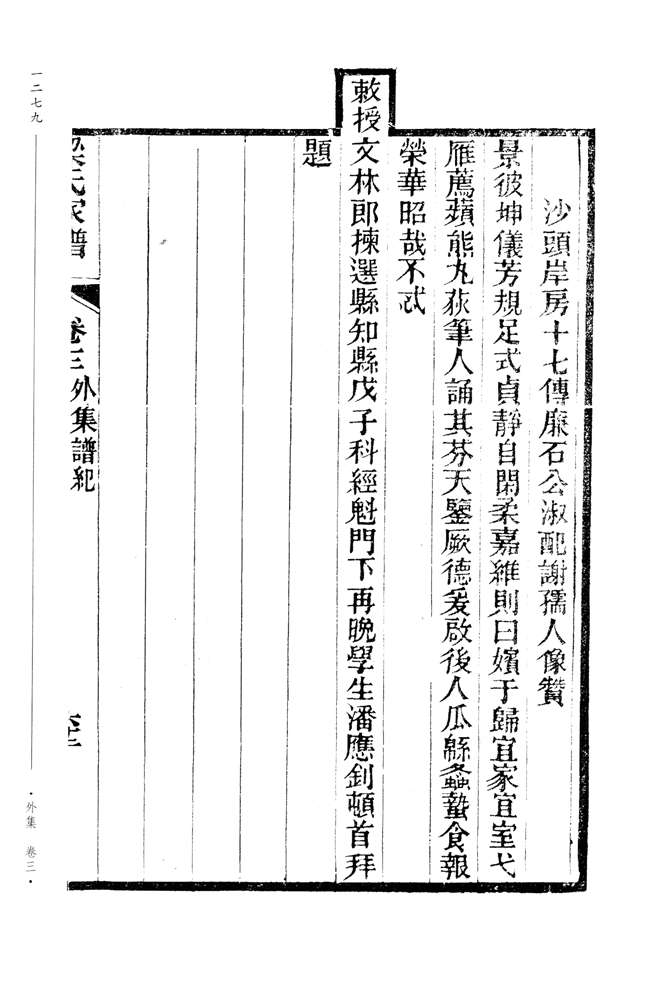 沙頭岸房十七傳廉石公淑配謝孺人像贊
景彼坤儀芳規足式貞靜自閑柔嘉維則曰嬪于歸宜家宜室弋
雁薦蘋熊丸荻筆人誦其芬天鑒厥德爰啟後人瓜緜螽蟄食報
榮華昭哉不忒
敕授文林郎揀選縣知縣戊子科經魁門下再晩學生潘應釗頓首拜
題
梁氏家譜
卷三外集譜紀
一二七九
·外集 卷三·